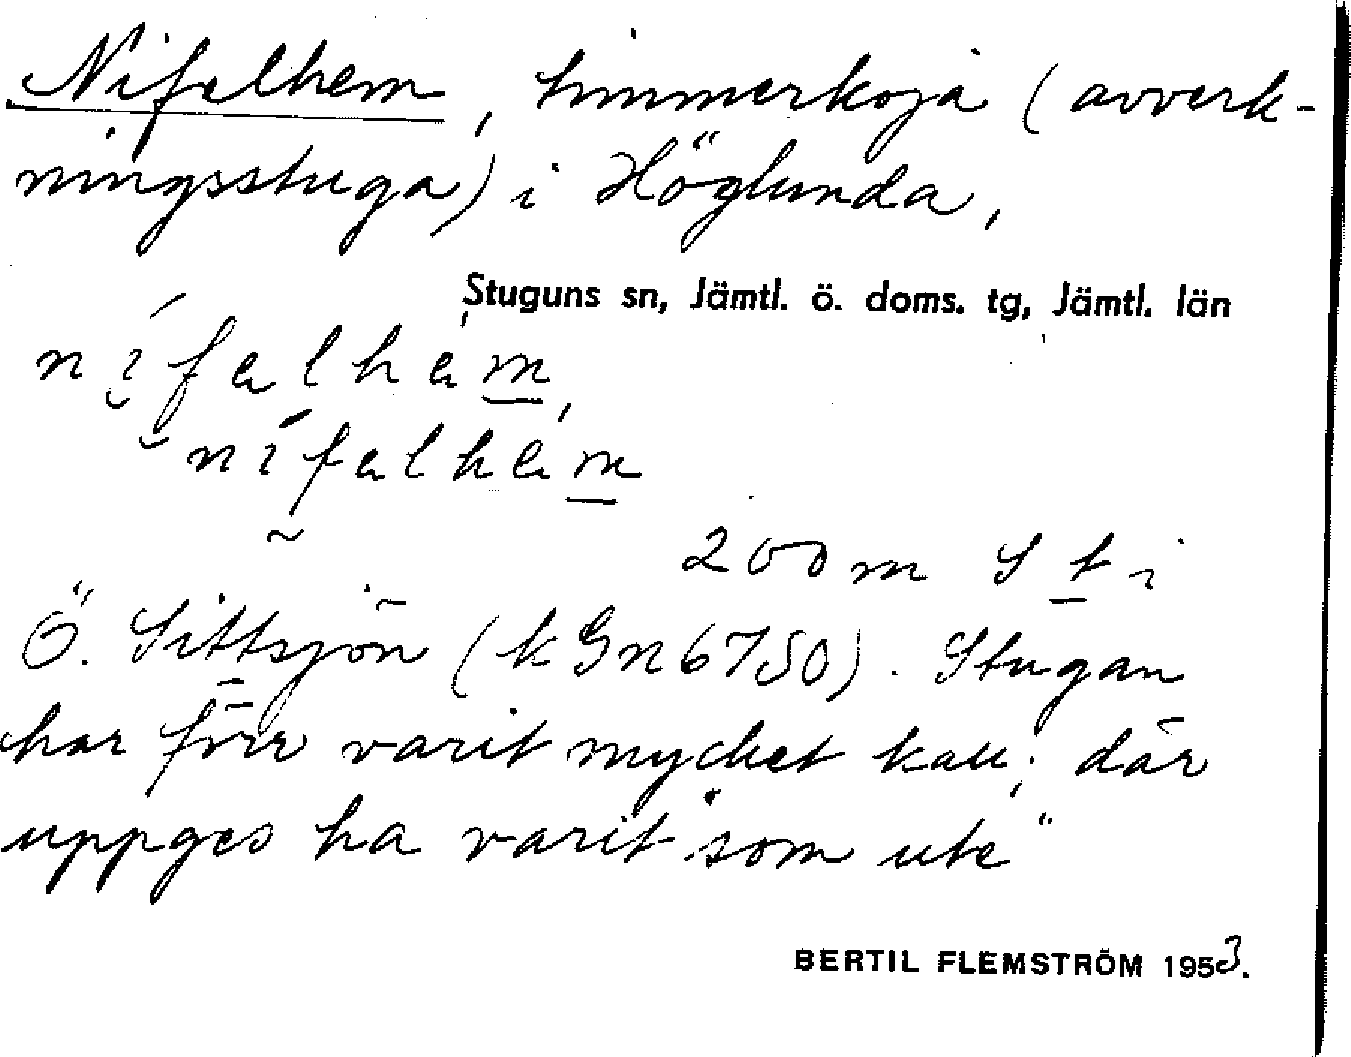 Nifelhem, timmerkoja (avverk-
ningsstuga) i Höglunda,
Stuguns sn, Jämtl. ö. doms. tg, Jämtl. län
200 m S t i
Ö. Sittsjön (kGn6750). Stugan
har förr varit mycket kall; där
uppges ha varit "som ute"
BERTIL FLEMSTRÖM 1953.